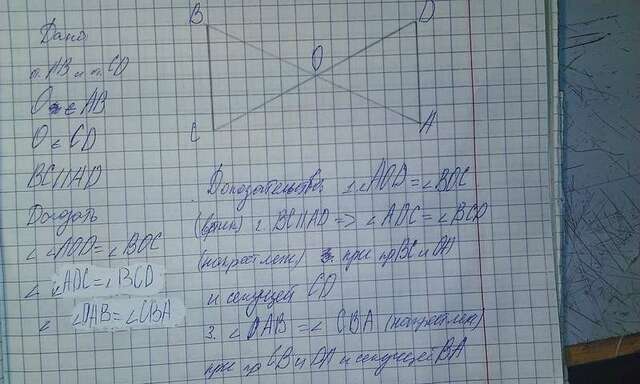 Дано
т. AB и т. CD
O ∈ AB
O ∈ CD
BC||AD
Доказать
∠ ∠AOD=∠BOC
∠ ∠ADC=∠BCD
∠ ∠DAB=∠CBA
B
D
O
C
A
Доказательство 1. ∠AOD=∠BOC
(верт) 2. BC||AD=>∠ADC=∠BCD
(накрест леж) при пр BC и DA
и секущей CD
3. ∠DAB=∠CBA (накрест леж)
при пр CB и DA и секущей BA